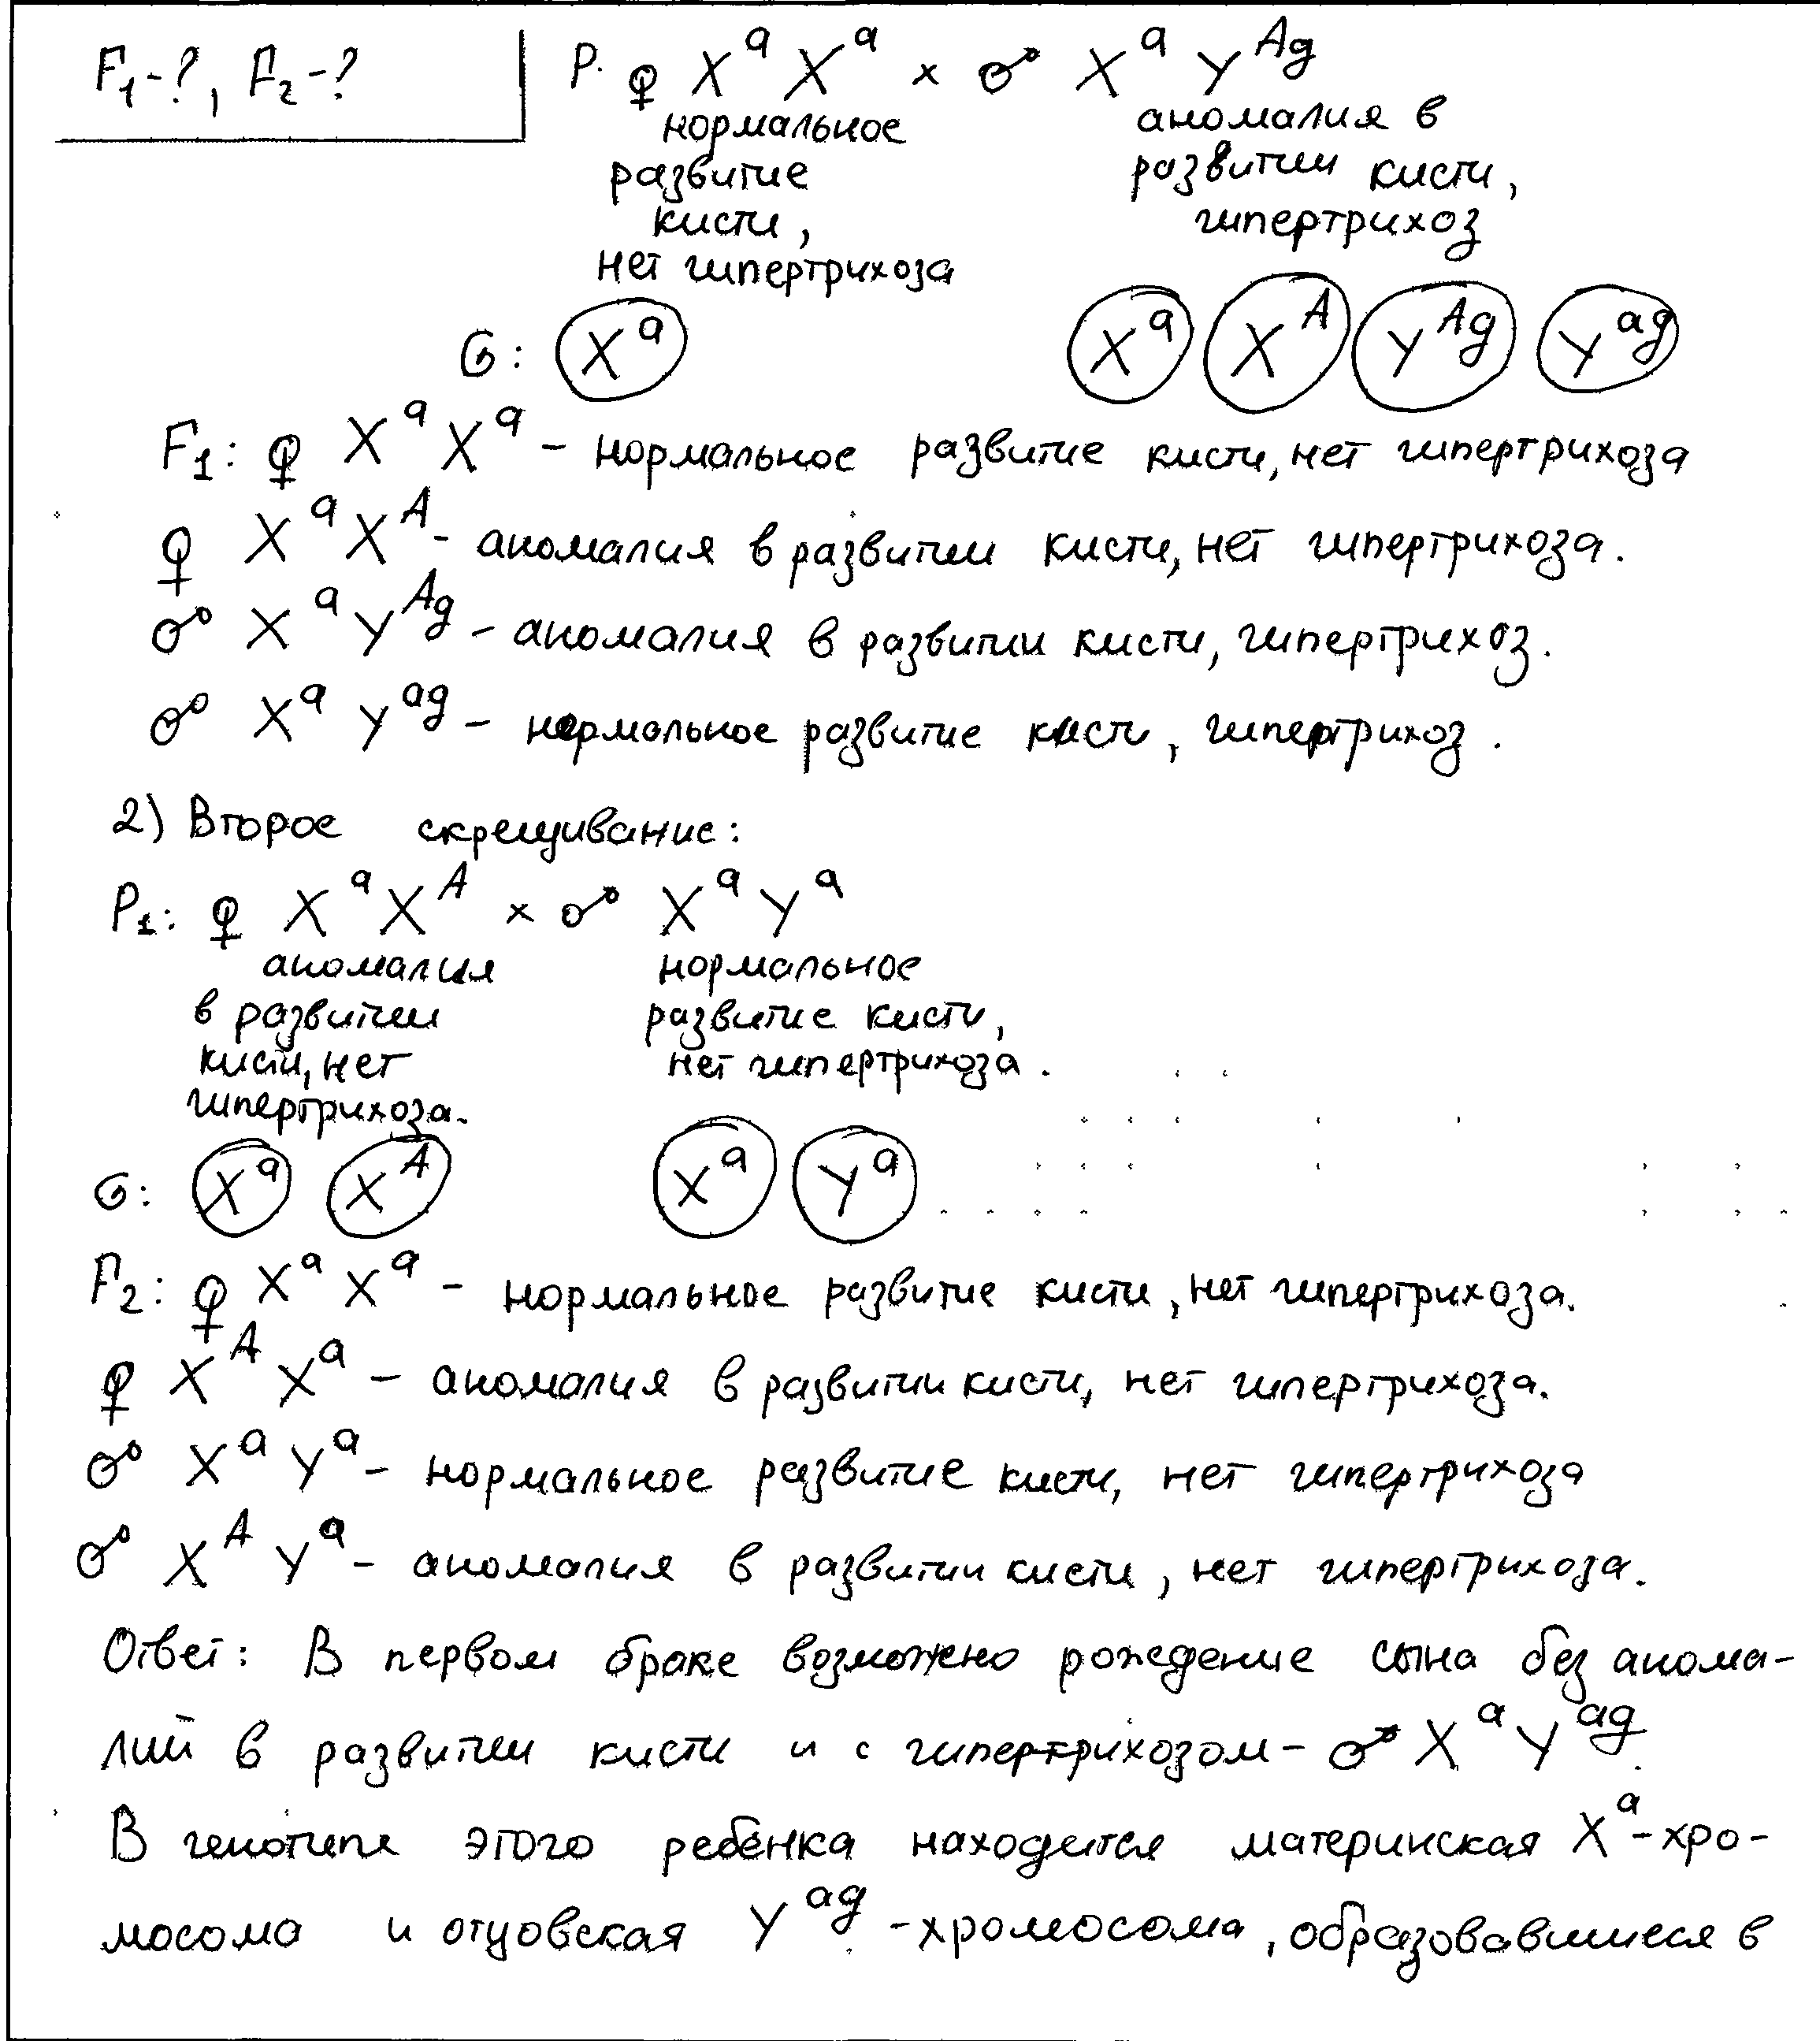 F₁-?, F₂-?
P. ♀ XᵃXᵃ × ♂ XᵃYᴬᵍ
нормальное развитие кисти, нет гипертрихоза
аномалия в развитии кисти, гипертрихоз
G: Xᵃ Xᵃ Xᴬ Yᴬᵍ Yᵃᵍ
F₁: ♀ XᵃXᵃ - нормальное развитие кисти, нет гипертрихоза
♀ XᵃXᴬ - аномалия в развитии кисти, нет гипертрихоза.
♂ XᵃYᴬᵍ - аномалия в развитии кисти, гипертрихоз.
♂ XᵃYᵃᵍ - нормальное развитие кисти, гипертрихоз.
2) Второе скрещивание:
P₁: ♀ XᵃXᴬ × ♂ XᵃYᵃ
аномалия в развитии кисти, нет гипертрихоза.
нормальное развитие кисти, нет гипертрихоза.
G: Xᵃ Xᴬ Xᵃ Yᵃ
F₂: ♀ XᵃXᵃ - нормальное развитие кисти, нет гипертрихоза.
♀ XᴬXᵃ - аномалия в развитии кисти, нет гипертрихоза.
♂ XᵃYᵃ - нормальное развитие кисти, нет гипертрихоза
♂ XᴬYᵃ - аномалия в развитии кисти, нет гипертрихоза.
Ответ: В первом браке возможно рождение сына без анома-
лий в развитии кисти и с гипертрихозом - ♂ XᵃYᵃᵍ.
В генотипе этого ребёнка находится материнская Xᵃ-хро-
мосома и отцовская Yᵃᵍ-хромосома, образовавшиеся в